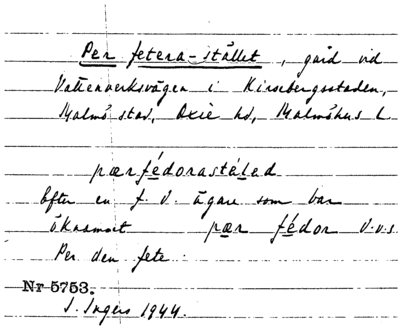 Per fetera-stället, gård vid
Vattenverksvägen i Kirsebergsstaden,
Malmö stad, Oxie hd, Malmöhus L.
pærfédorastéled
Efter en f. d. ägare som bar
öknamnet pær fédor d.v.s.
Per den fete.
Nr 5753.
I. Ingers 1944.